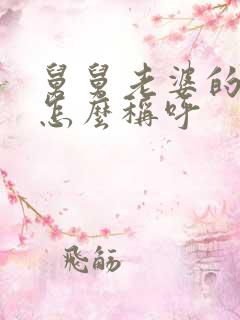 舅舅老婆的
怎麼稱呼
飛觞